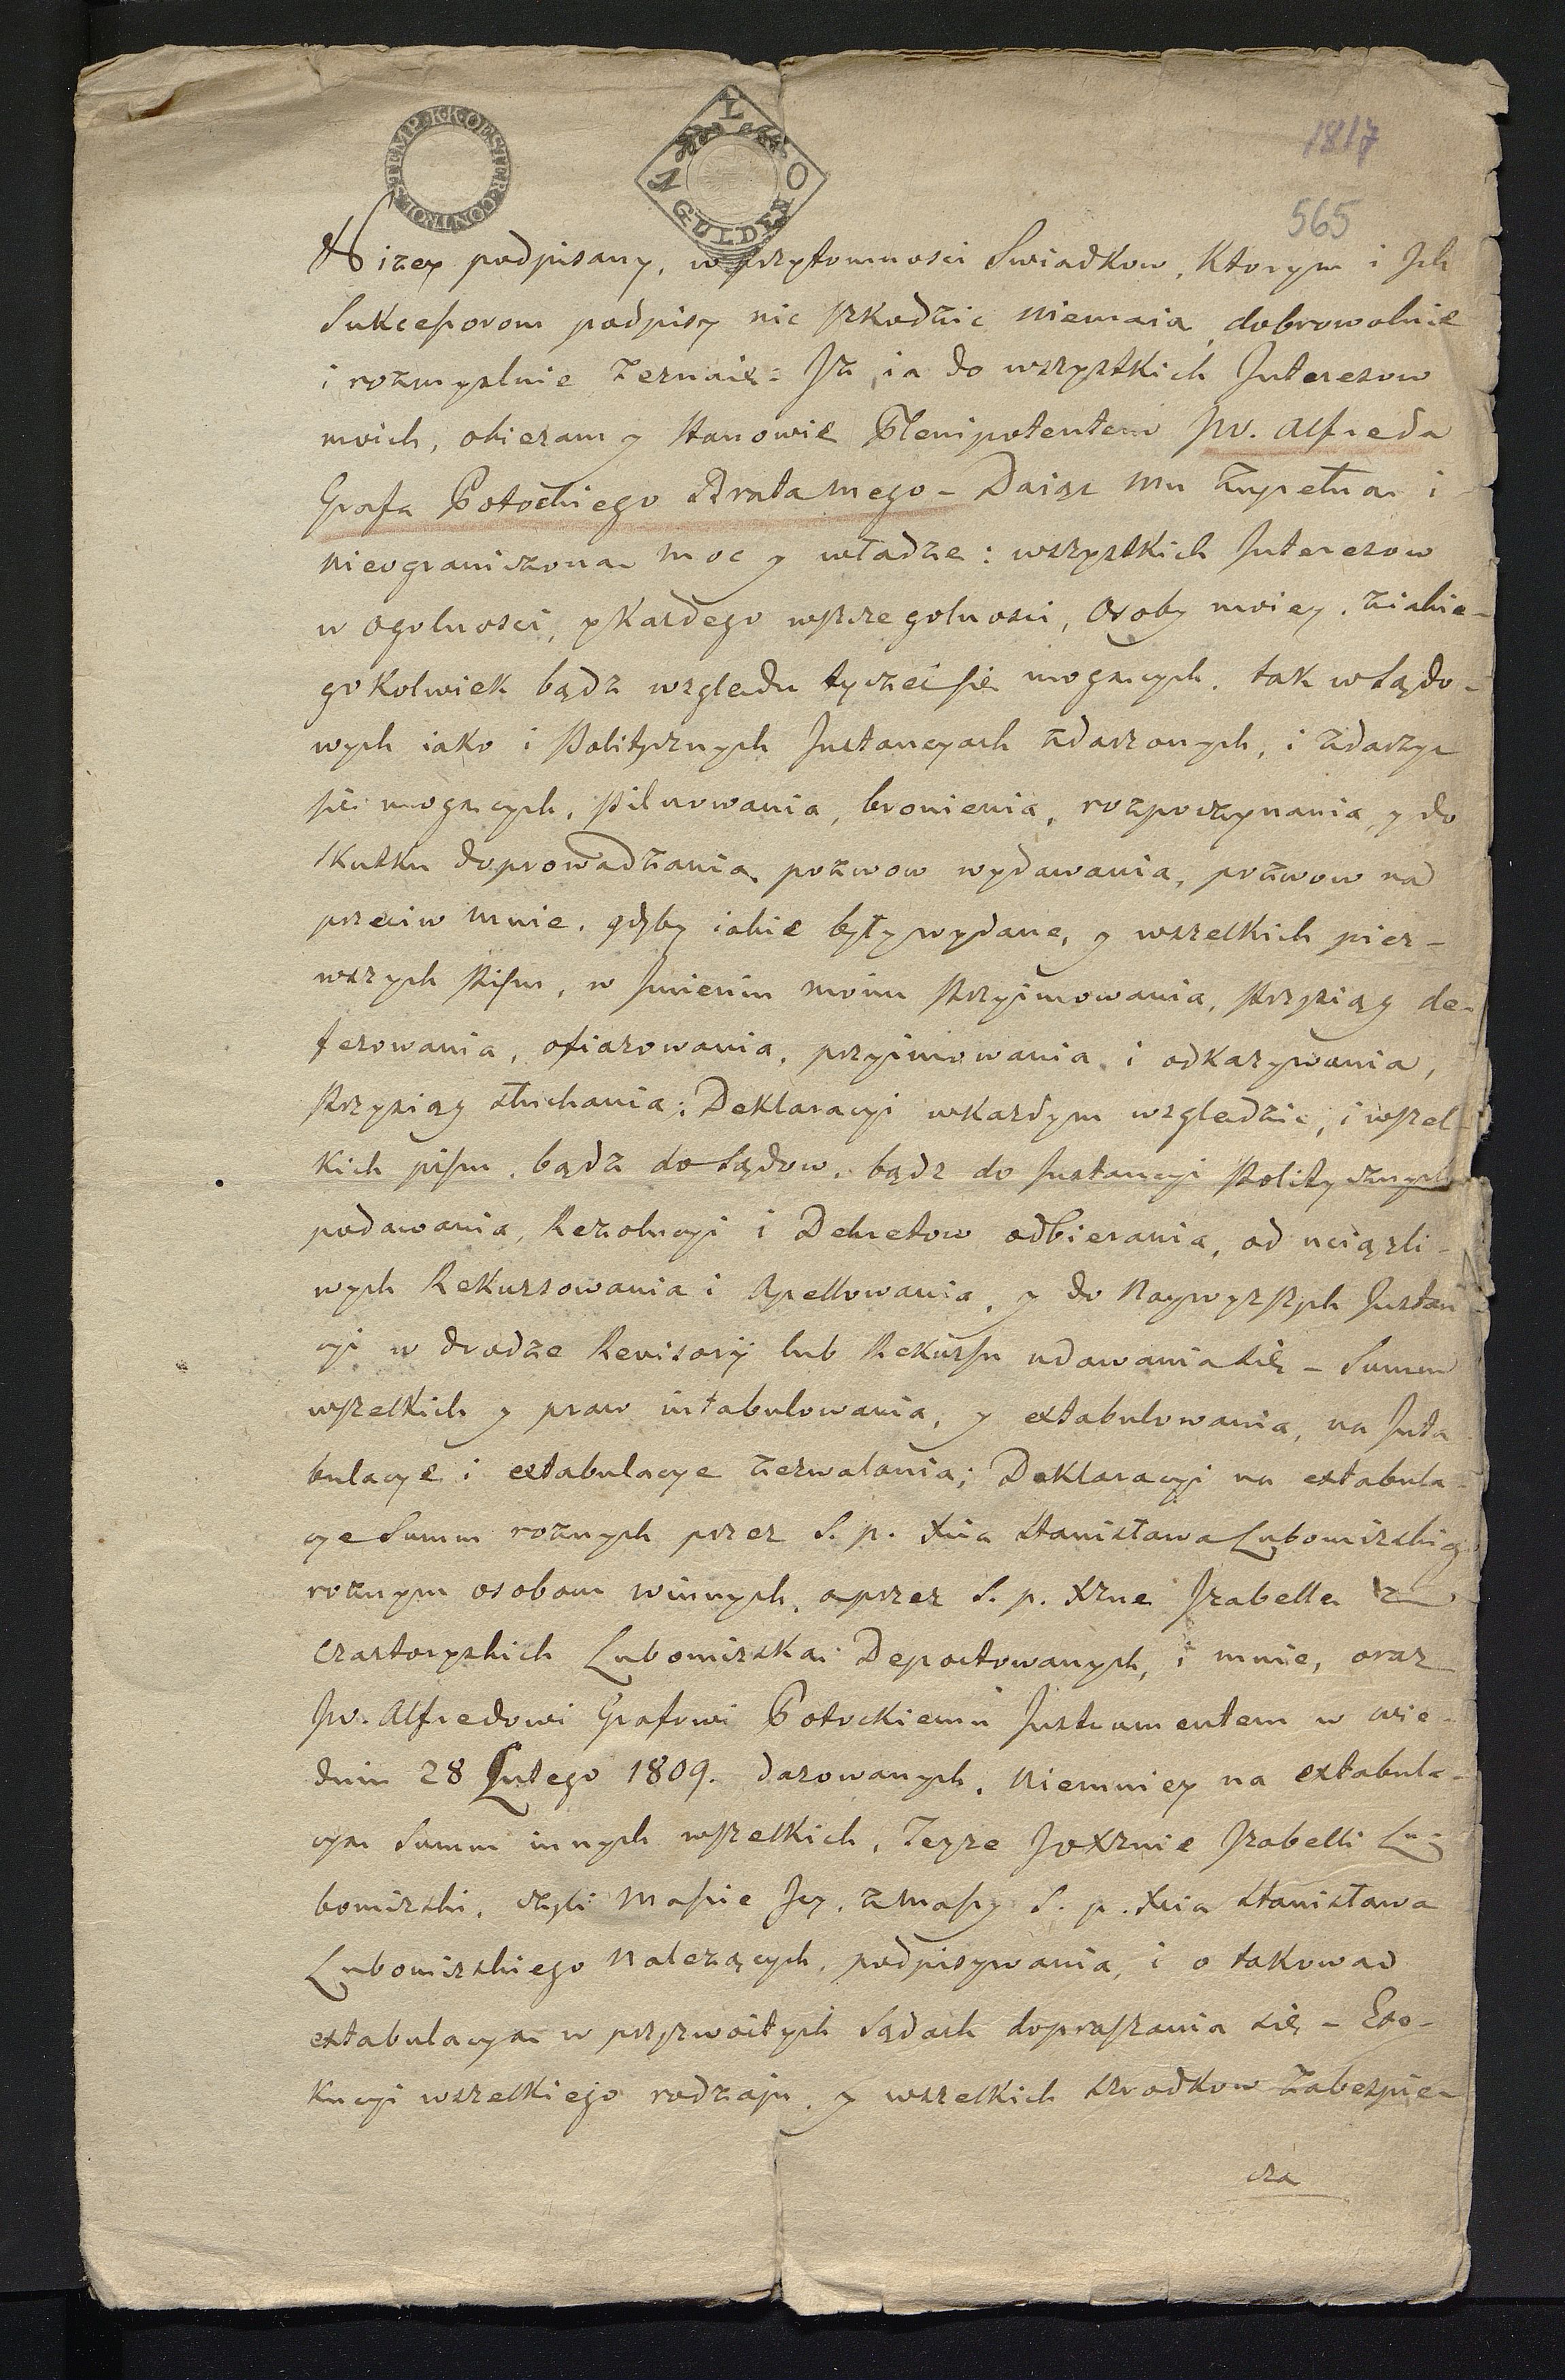 STEMP. KK. OESTER. CONTROL
1 GULDEN L O
1817
565
Nizey podpisany, w przytomnosci Swiadkow, Ktorym i Jch
Sukcessorom podpisy nic szkodzic niemaia, dobrowolnie
i rozmyslnie zeznaię: Jz ia do wszystkich Jnteresow
moich, obieram y stanowię Plenipotentem Jw. Alfreda
Grafa Potockiego Brata mego – Daiąc mu zupełna i
nieograniczona moc y władze: wszystkich Jnteresow
w ogolnosci, y Kazdego wszczegolnosci, Osoby moiey, ziakie-
gokolwiek bądz względu tyczeć się mogących, tak w Sądo-
wych iako i Politycznych Jnstancyach zdarzonych, i zdarzyc
się mogących, Pilnowania, bronienia, rozpoczynania y do
skutku doprowadzania, pozwow wydawania, pozwow na
przeciw mnie, gdyby iakie były wydane, y wszelkich pier-
wszych Pism, w Jmieniu moim Przyimowania, Przysiąg de-
ferowania, ofiarowania, przyimowania i odkazywania,
Przysiąg słuchania; Deklaracyi wkazdym względzie, i wszel-
kich pism, bądz do Sądow, bądz do Jnstancyi Politycznych
podawania, Rezolucyi i Dekretow odbierania, od uciązli-
wych Rekursowania i Apellowania, y do Naywyzszych Jnstan
cyi w drodze Rewisory lub Rekursu udawania się – Summ
wszelkich y praw intabulowania, y extabulowania, na Jnta
bulacye i extabulacye zezwalania; Deklaracyi na extabula-
cye Summ roznych przez S. p. Xcia Stanisława Lubomirskieg
roznym osobom winnych, a przez S. p. Xzne Jzabelle z
Czartoryskich Lubomirska Depactowanych, i mnie, oraz
Jw. Alfredowi Grafowi Potockiemu Jnstrumentem w Wie-
dniu 28 Lutego 1809. darowanych, Niemniey na extabula-
cya Summ innych wszelkich, Teyze Jo Xznie Jzabelli Lu-
bomirski, czyli Massie Jey, z Massy S. p. Xcia Stanisława
Lubomirskiego Nalezących, podpisywania, i o takowad
extabulacya w przyzwoitych Sądach dopraszania się – Exe-
kucyi wszelkiego rodzaju, y wszelkich srodkow zabespie-
cza